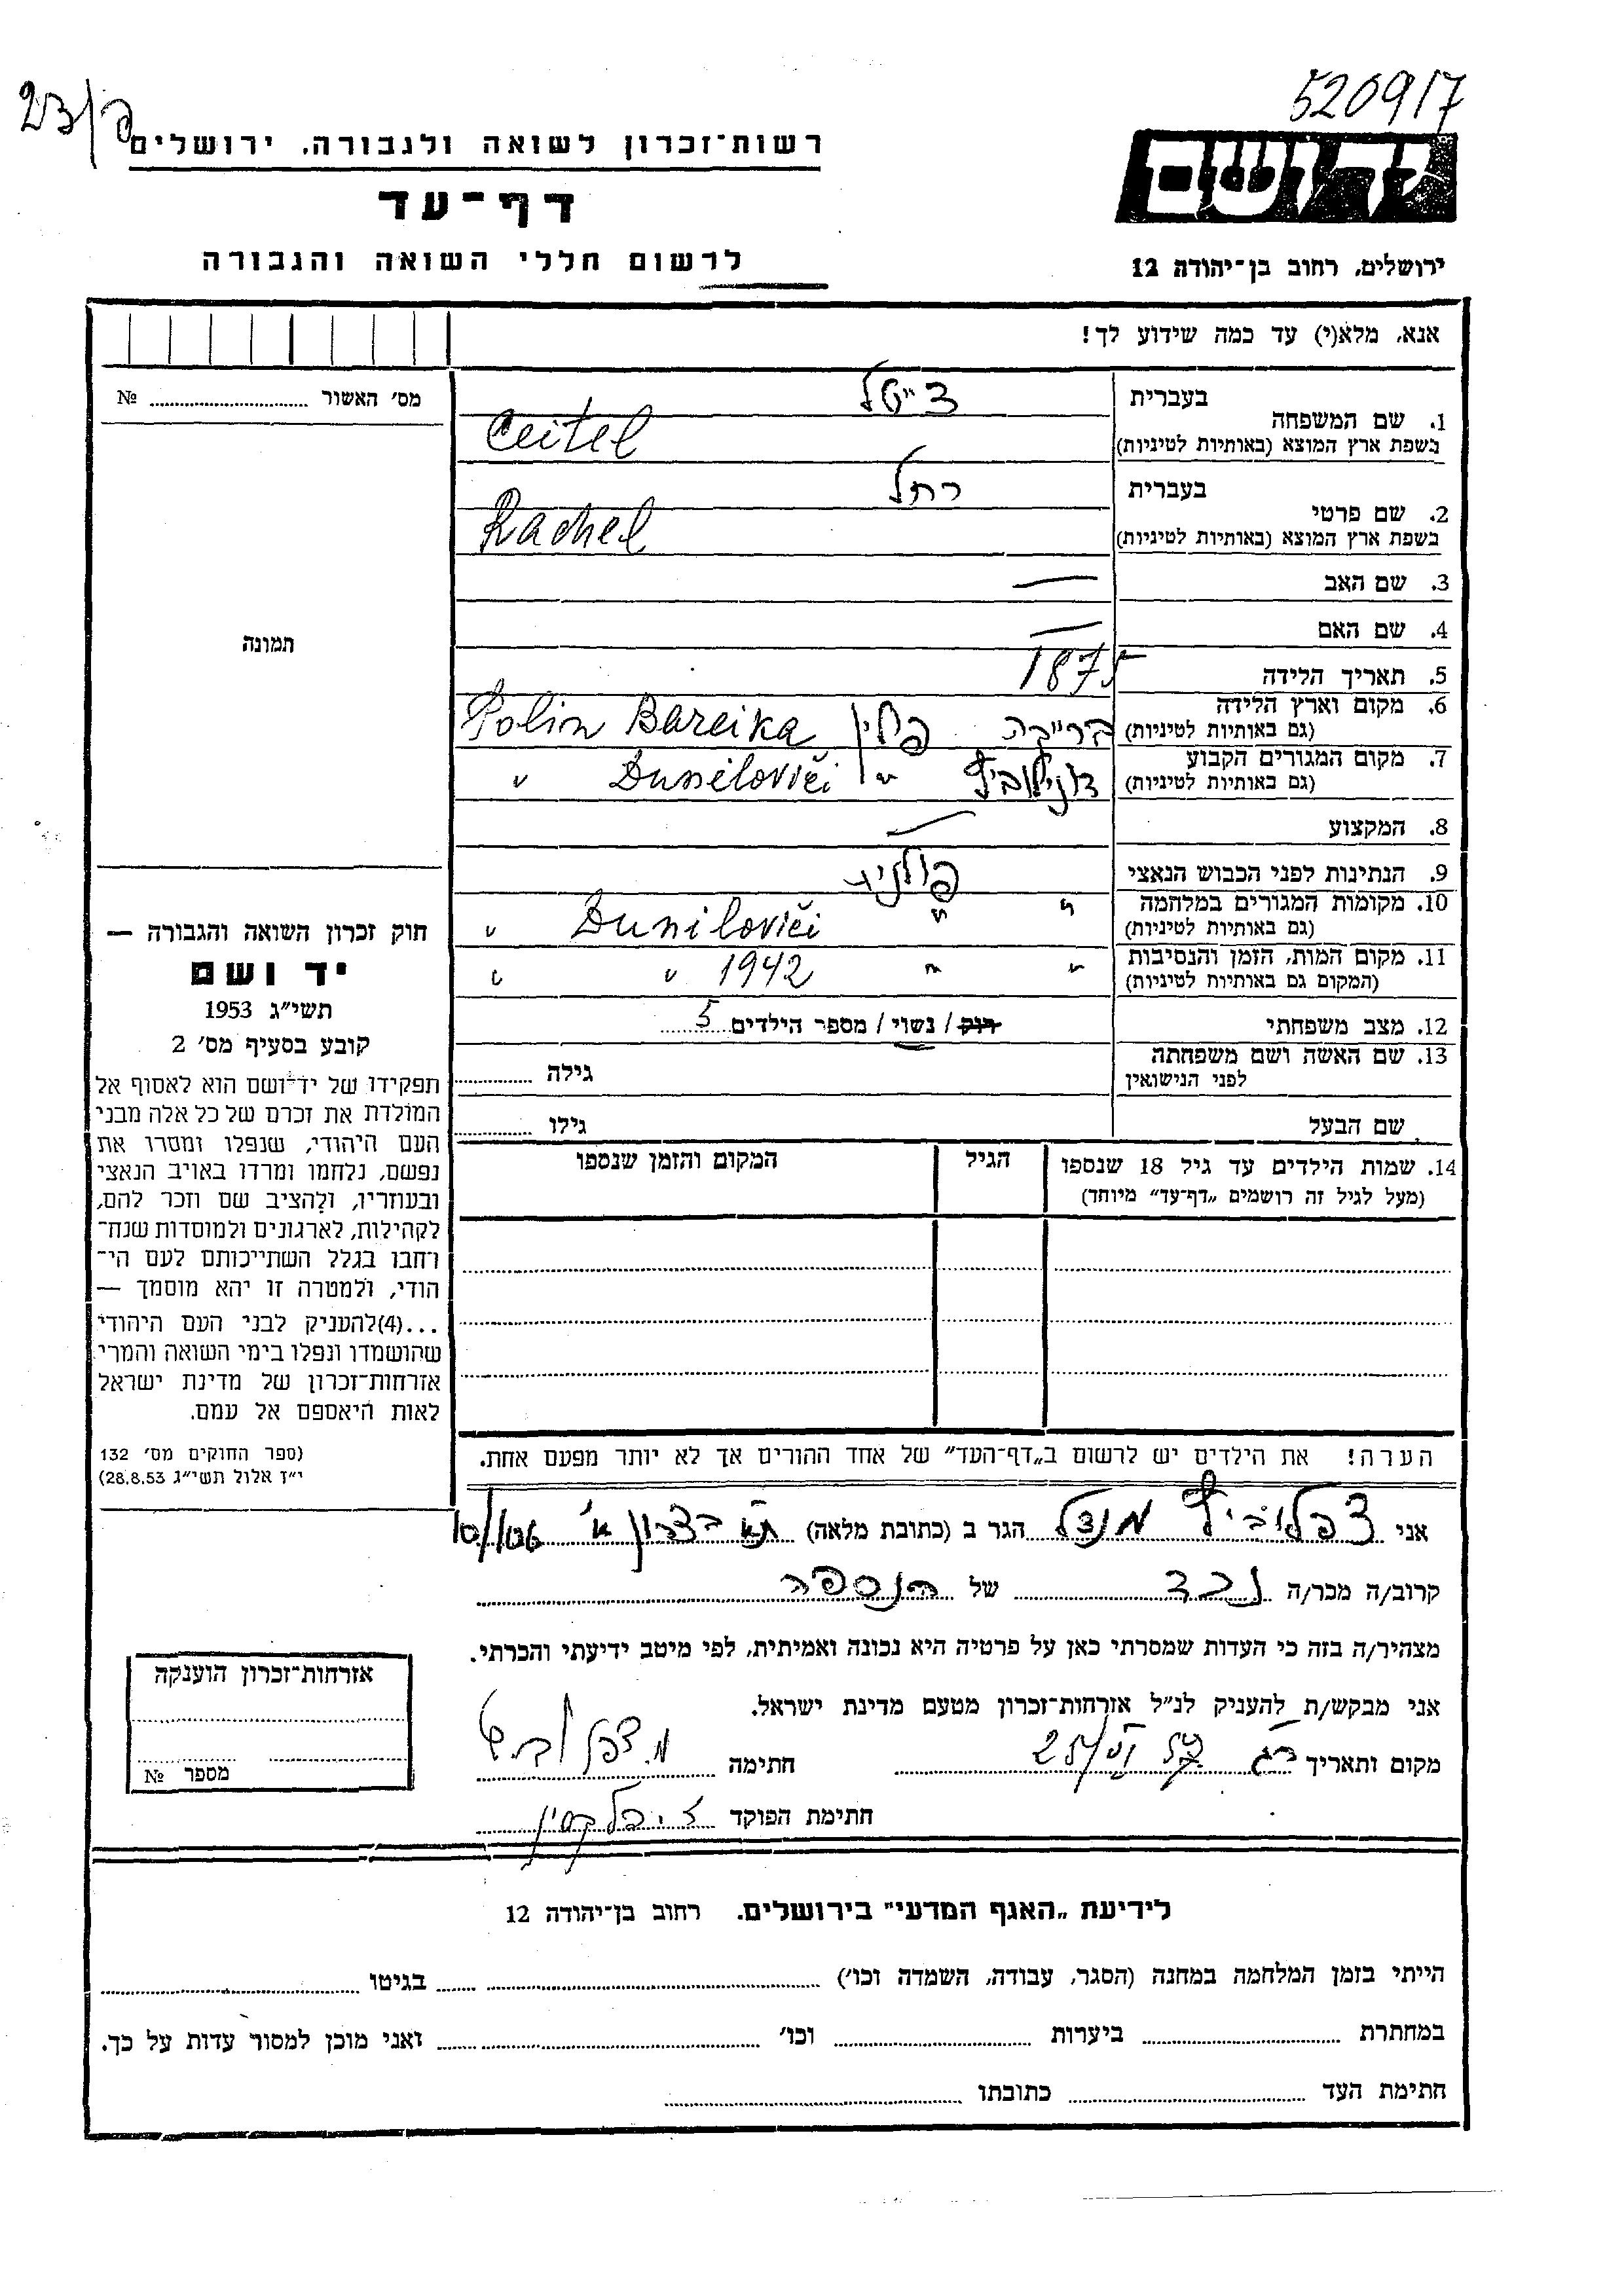 520917
23/פ
יד ושם
רשות־זכרון לשואה ולגבורה, ירושלים
דף־עד
לרשום חללי השואה והגבורה
ירושלים, רחוב בן־יהודה 12
אנא, מלא(י) עד כמה שידוע לך!
מס׳ האשור № 
1. שם המשפחה
בעברית צייטל
בשפת ארץ המוצא (באותיות לטיניות) Ceitel
2. שם פרטי
בעברית רחל
בשפת ארץ המוצא (באותיות לטיניות) Rachel
3. שם האב —
4. שם האם —
5. תאריך הלידה 1875
6. מקום וארץ הלידה
(גם באותיות לטיניות) ברייקה פולין Polin Bareika
7. מקום המגורים הקבוע
(גם באותיות לטיניות) דונילוביץ " Dunilovići "
8. המקצוע —
9. הנתינות לפני הכבוש הנאצי פולנית
10. מקומות המגורים במלחמה
(גם באותיות לטיניות) " " Dunilovići "
11. מקום המות, הזמן והנסיבות
(המקום גם באותיות לטיניות) " " 1942 " "
12. מצב משפחתי רווק / נשוי / מספר הילדים 5
13. שם האשה ושם משפחתה
לפני הנישואין גילה
שם הבעל גילו
14. שמות הילדים עד גיל 18 שנספו
(מעל לגיל זה רושמים „דף־עד״ מיוחד)
הגיל
המקום והזמן שנספו
תמונה
חוק זכרון השואה והגבורה —
יד ושם
תשי״ג 1953
קובע בסעיף מס׳ 2
תפקידו של יד־ושם הוא לאסוף אל
המולדת את זכרם של כל אלה מבני
העם היהודי, שנפלו ומסרו את
נפשם, נלחמו ומרדו באויב הנאצי
ובעוזריו, ולהציב שם וזכר להם,
לקהילות, לארגונים ולמוסדות שנח־
רחבו בגלל השתייכותם לעם הי־
הודי, ולמטרה זו יהא מוסמך —
...(4)להעניק לבני העם היהודי
שהושמדו ונפלו בימי השואה והמרי
אזרחות־זכרון של מדינת ישראל
לאות היאספם אל עמם.
(ספר החוקים מס׳ 132
י״ז אלול תשי״ג 28.8.53)
הערה! את הילדים יש לרשום ב„דף־העד״ של אחד ההורים אך לא יותר מפעם אחת.
אני צפלוביץ מנדל הגר ב (כתובת מלאה) ת״א בצרון א׳ 10/106
קרוב/ה מכר/ה נכד של הנספה
מצהיר/ה בזה כי העדות שמסרתי כאן על פרטיה היא נכונה ואמיתית, לפי מיטב ידיעתי והכרתי.
אני מבקש/ת להעניק לנ״ל אזרחות־זכרון מטעם מדינת ישראל.
מקום ותאריך חתימה מ. צפלוביץ
חתימת הפוקד
אזרחות־זכרון הוענקה
מספר №
לידיעת „האגף המדעי״ בירושלים. רחוב בן־יהודה 12
הייתי בזמן המלחמה במחנה (הסגר, עבודה, השמדה וכו׳) בגיטו
במחתרת ביערות וכו׳ ואני מוכן למסור עדות על כך.
חתימת העד כתובתו